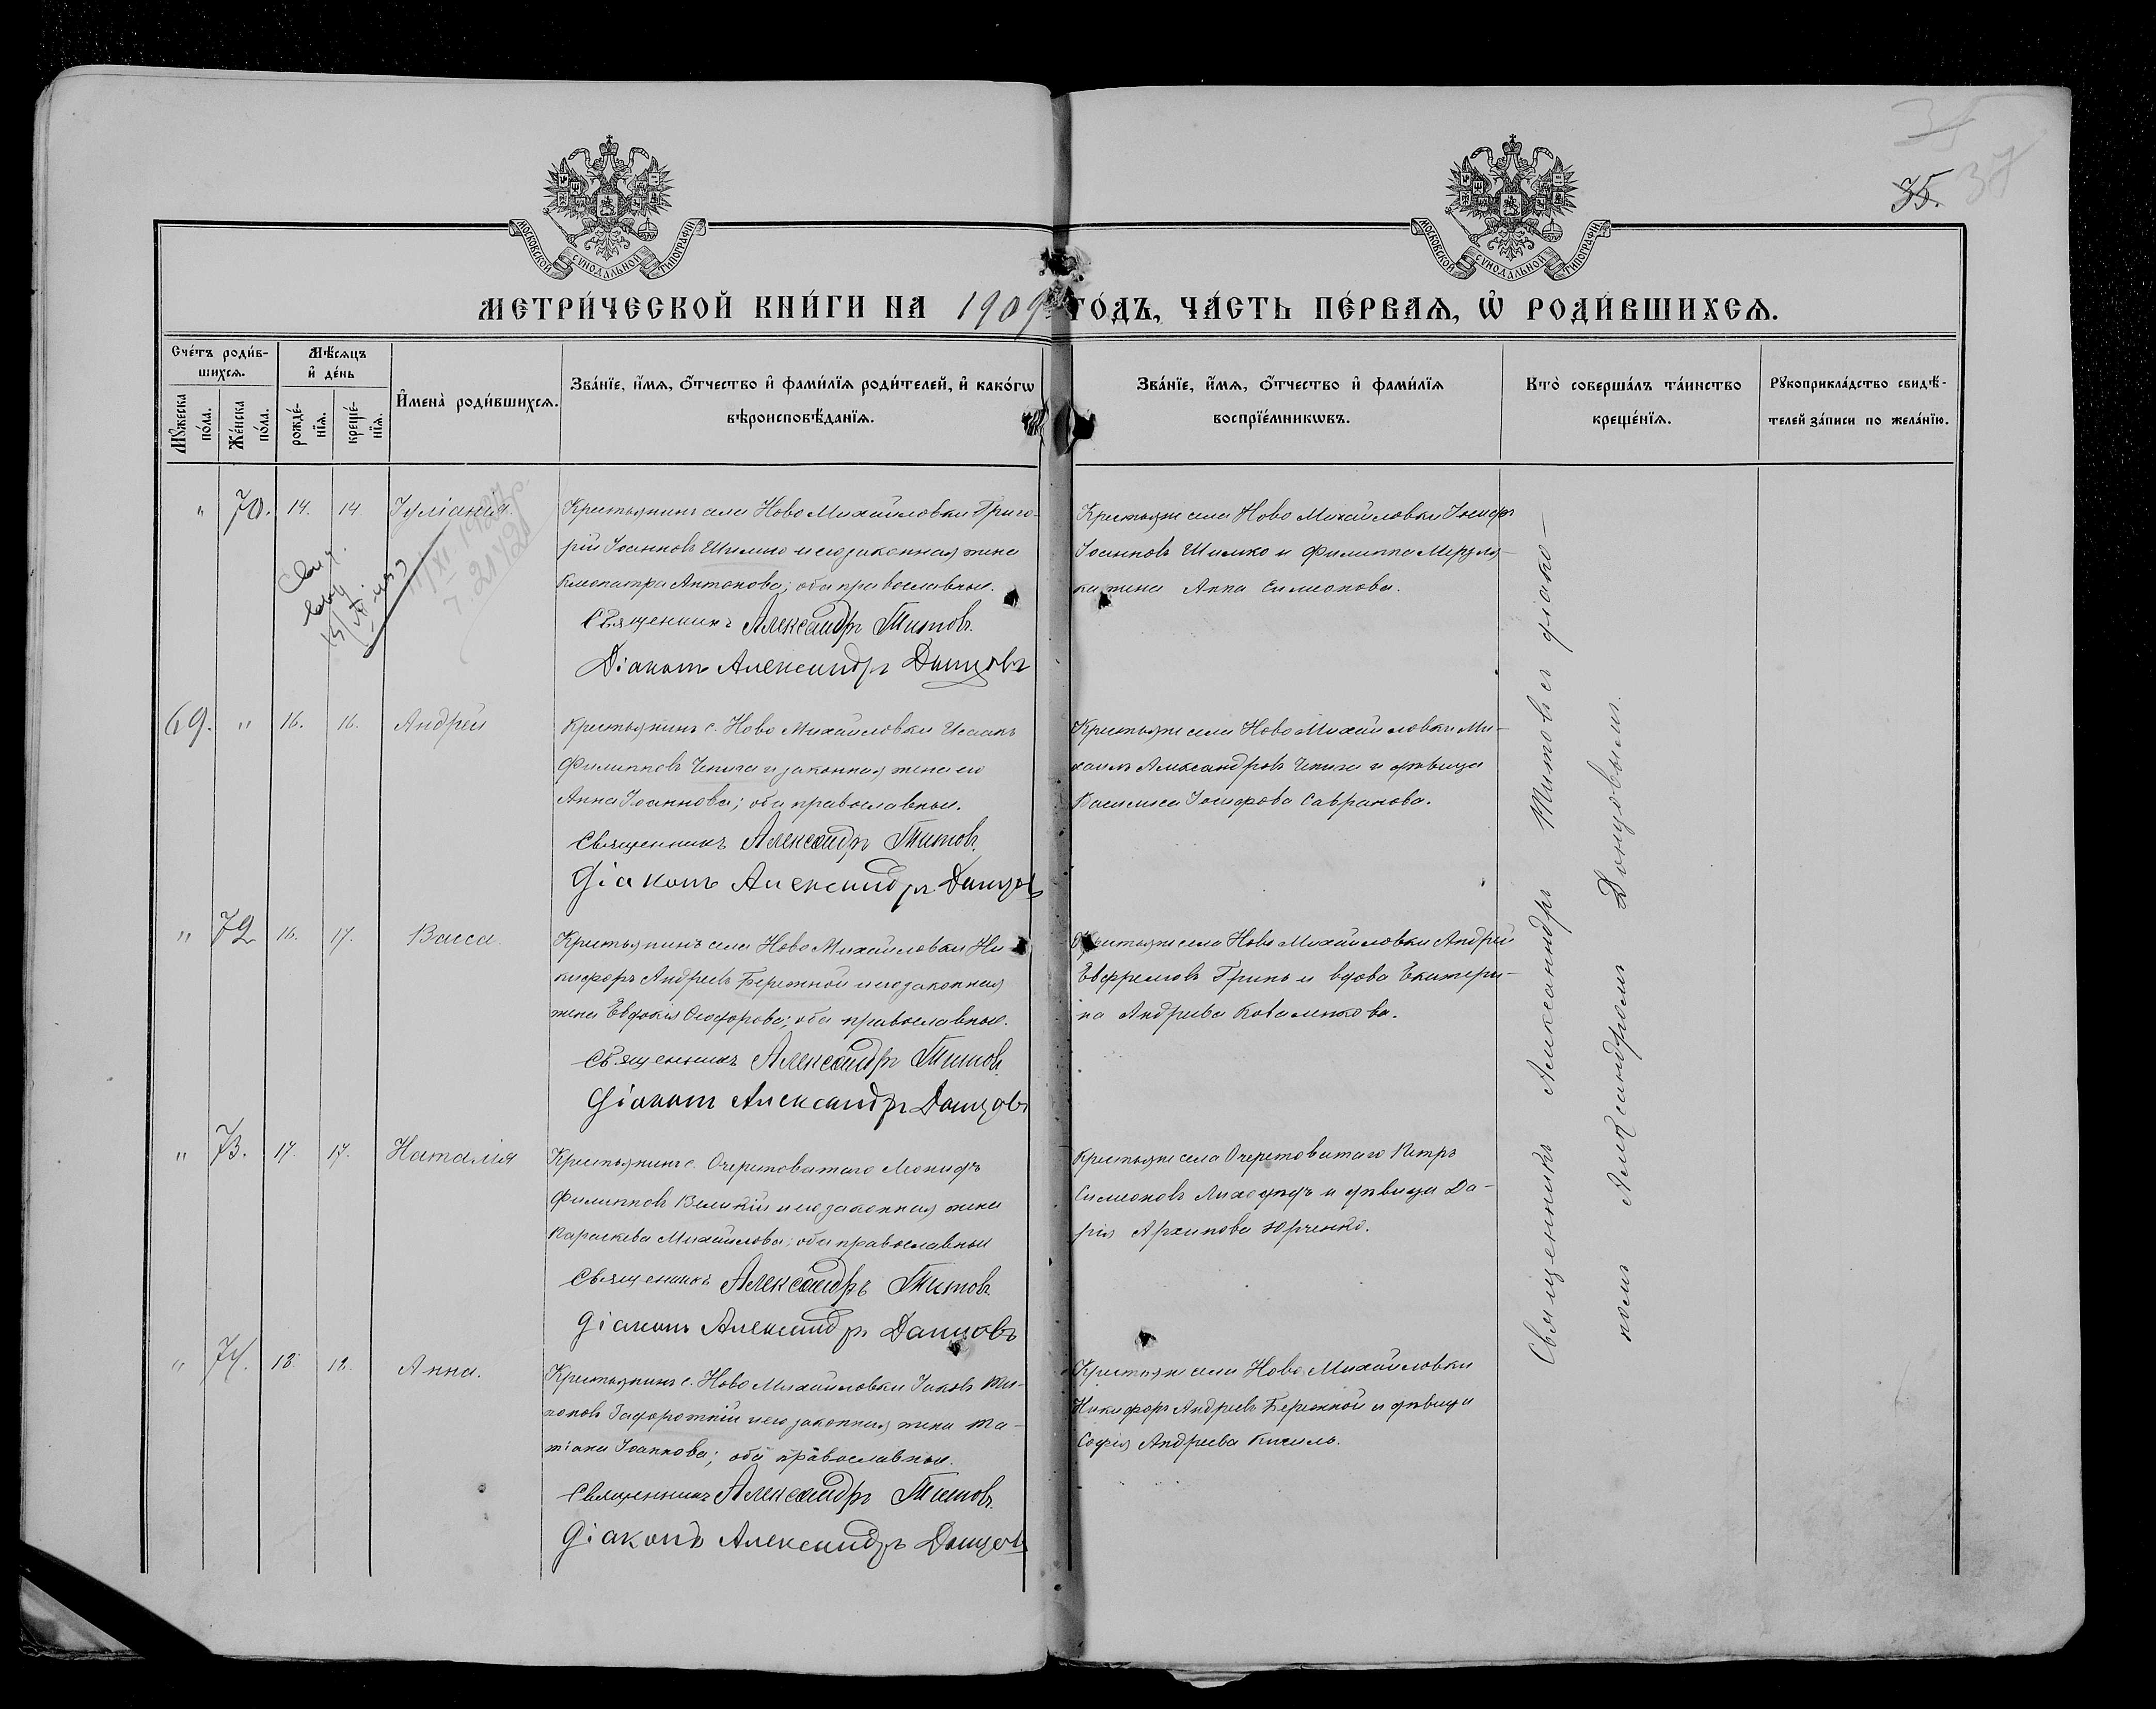 35
35. 37
МОСКОВСКОЙ СѴНОДАЛЬНОЙ ТИПОГРАФІИ
МОСКОВСКОЙ СѴНОДАЛЬНОЙ ТИПОГРАФІИ
МЕТРИ́ЧЕСКОЙ КНИ́ГИ НА 1909 ГО́ДЪ, ЧА́СТЬ ПЕ́РВАѦ, Ѡ҆ РОДИ́ВШИХСѦ.
Сче́тъ роди́в-
шихсѧ.
Мꙋ́жеска по́ла.
Же́нска по́ла.
Мѣ́сѧцъ
и҆ де́нь
рожде́-
нїѧ.
креще́-
нїѧ.
И҆мена̀ роди́вшихсѧ.
Зва́нїе, и҆́мѧ, ѻ҆́тчество и҆ фами́лїѧ роди́телей, и҆ како́гѡ
вѣроисповѣ́данїѧ.
Зва́нїе, и҆́мѧ, ѻ҆́тчество и҆ фами́лїѧ
воспрїе́мникѡвъ.
Кто̀ соверша́лъ та́инство
креще́нїѧ.
Рꙋкоприкла́дство свидѣ́-
телей за́писи по жела́нїю.
" 70. 14. 14 Іуліанія.
Крестьянинъ села Ново Михайловки Григо-
рій Іоанновъ Шимко и его законная жена
Клеопатра Антонова; оба православные.
Священникъ Александръ Титовъ.
Діаконъ Александръ Донцовъ
Крестьяне села Ново Михайловки Іосифъ
Іоанновъ Шимко и Филиппа Мерзля-
ка жена Анна Симеонова.
69. " 16. 16. Андрей
Крестьянинъ с. Ново Михайловки Исаакъ
Филипповъ Чепига и законная жена его
Анна Іоаннова; оба православные.
Священникъ Александръ Титовъ.
Діаконъ Александръ Донцовъ
Крестьяне села Ново Михайловки Ми-
хаилъ Александровъ Чепига и дѣвица
Василиса Іосифова Савранова.
" 72 16. 17. Васса.
Крестьянинъ села Ново Михайловки Ни-
кифоръ Андреевъ Бережной и его законная
жена Евдокія Ѳеодорова; оба православные.
Священникъ Александръ Титовъ.
Діаконъ Александръ Донцовъ
Крестьяне села Ново Михайловки Андрей
Евфремовъ Гринь и вдова Екатери-
на Андреева Коваленкова.
" 73. 17. 17. Наталія
Крестьянинъ с. Очеретоватаго Леонидъ
Филипповъ Великій и его законная жена
Параскева Михайлова; оба православные
Священникъ Александръ Титовъ.
Діаконъ Александръ Донцовъ
Крестьяне села Очеретоватаго Петръ
Симеоновъ Лиходѣдъ и дѣвица Да-
рія Архипова Юрченко.
" 74. 18. 18. Анна.
Крестьянинъ с. Ново Михайловки Іаковъ Ти-
хоновъ Задорожній и его законная жена Та-
тіана Іоаннова; оба православные.
Священникъ Александръ Титовъ.
Діаконъ Александръ Донцовъ
Крестьяне села Ново Михайловки
Никифоръ Андреевъ Бережной и дѣвица
Софія Андреева Кисиль.
Священникъ Александръ Титовъ съ діако-
номъ Александромъ Донцовымъ.